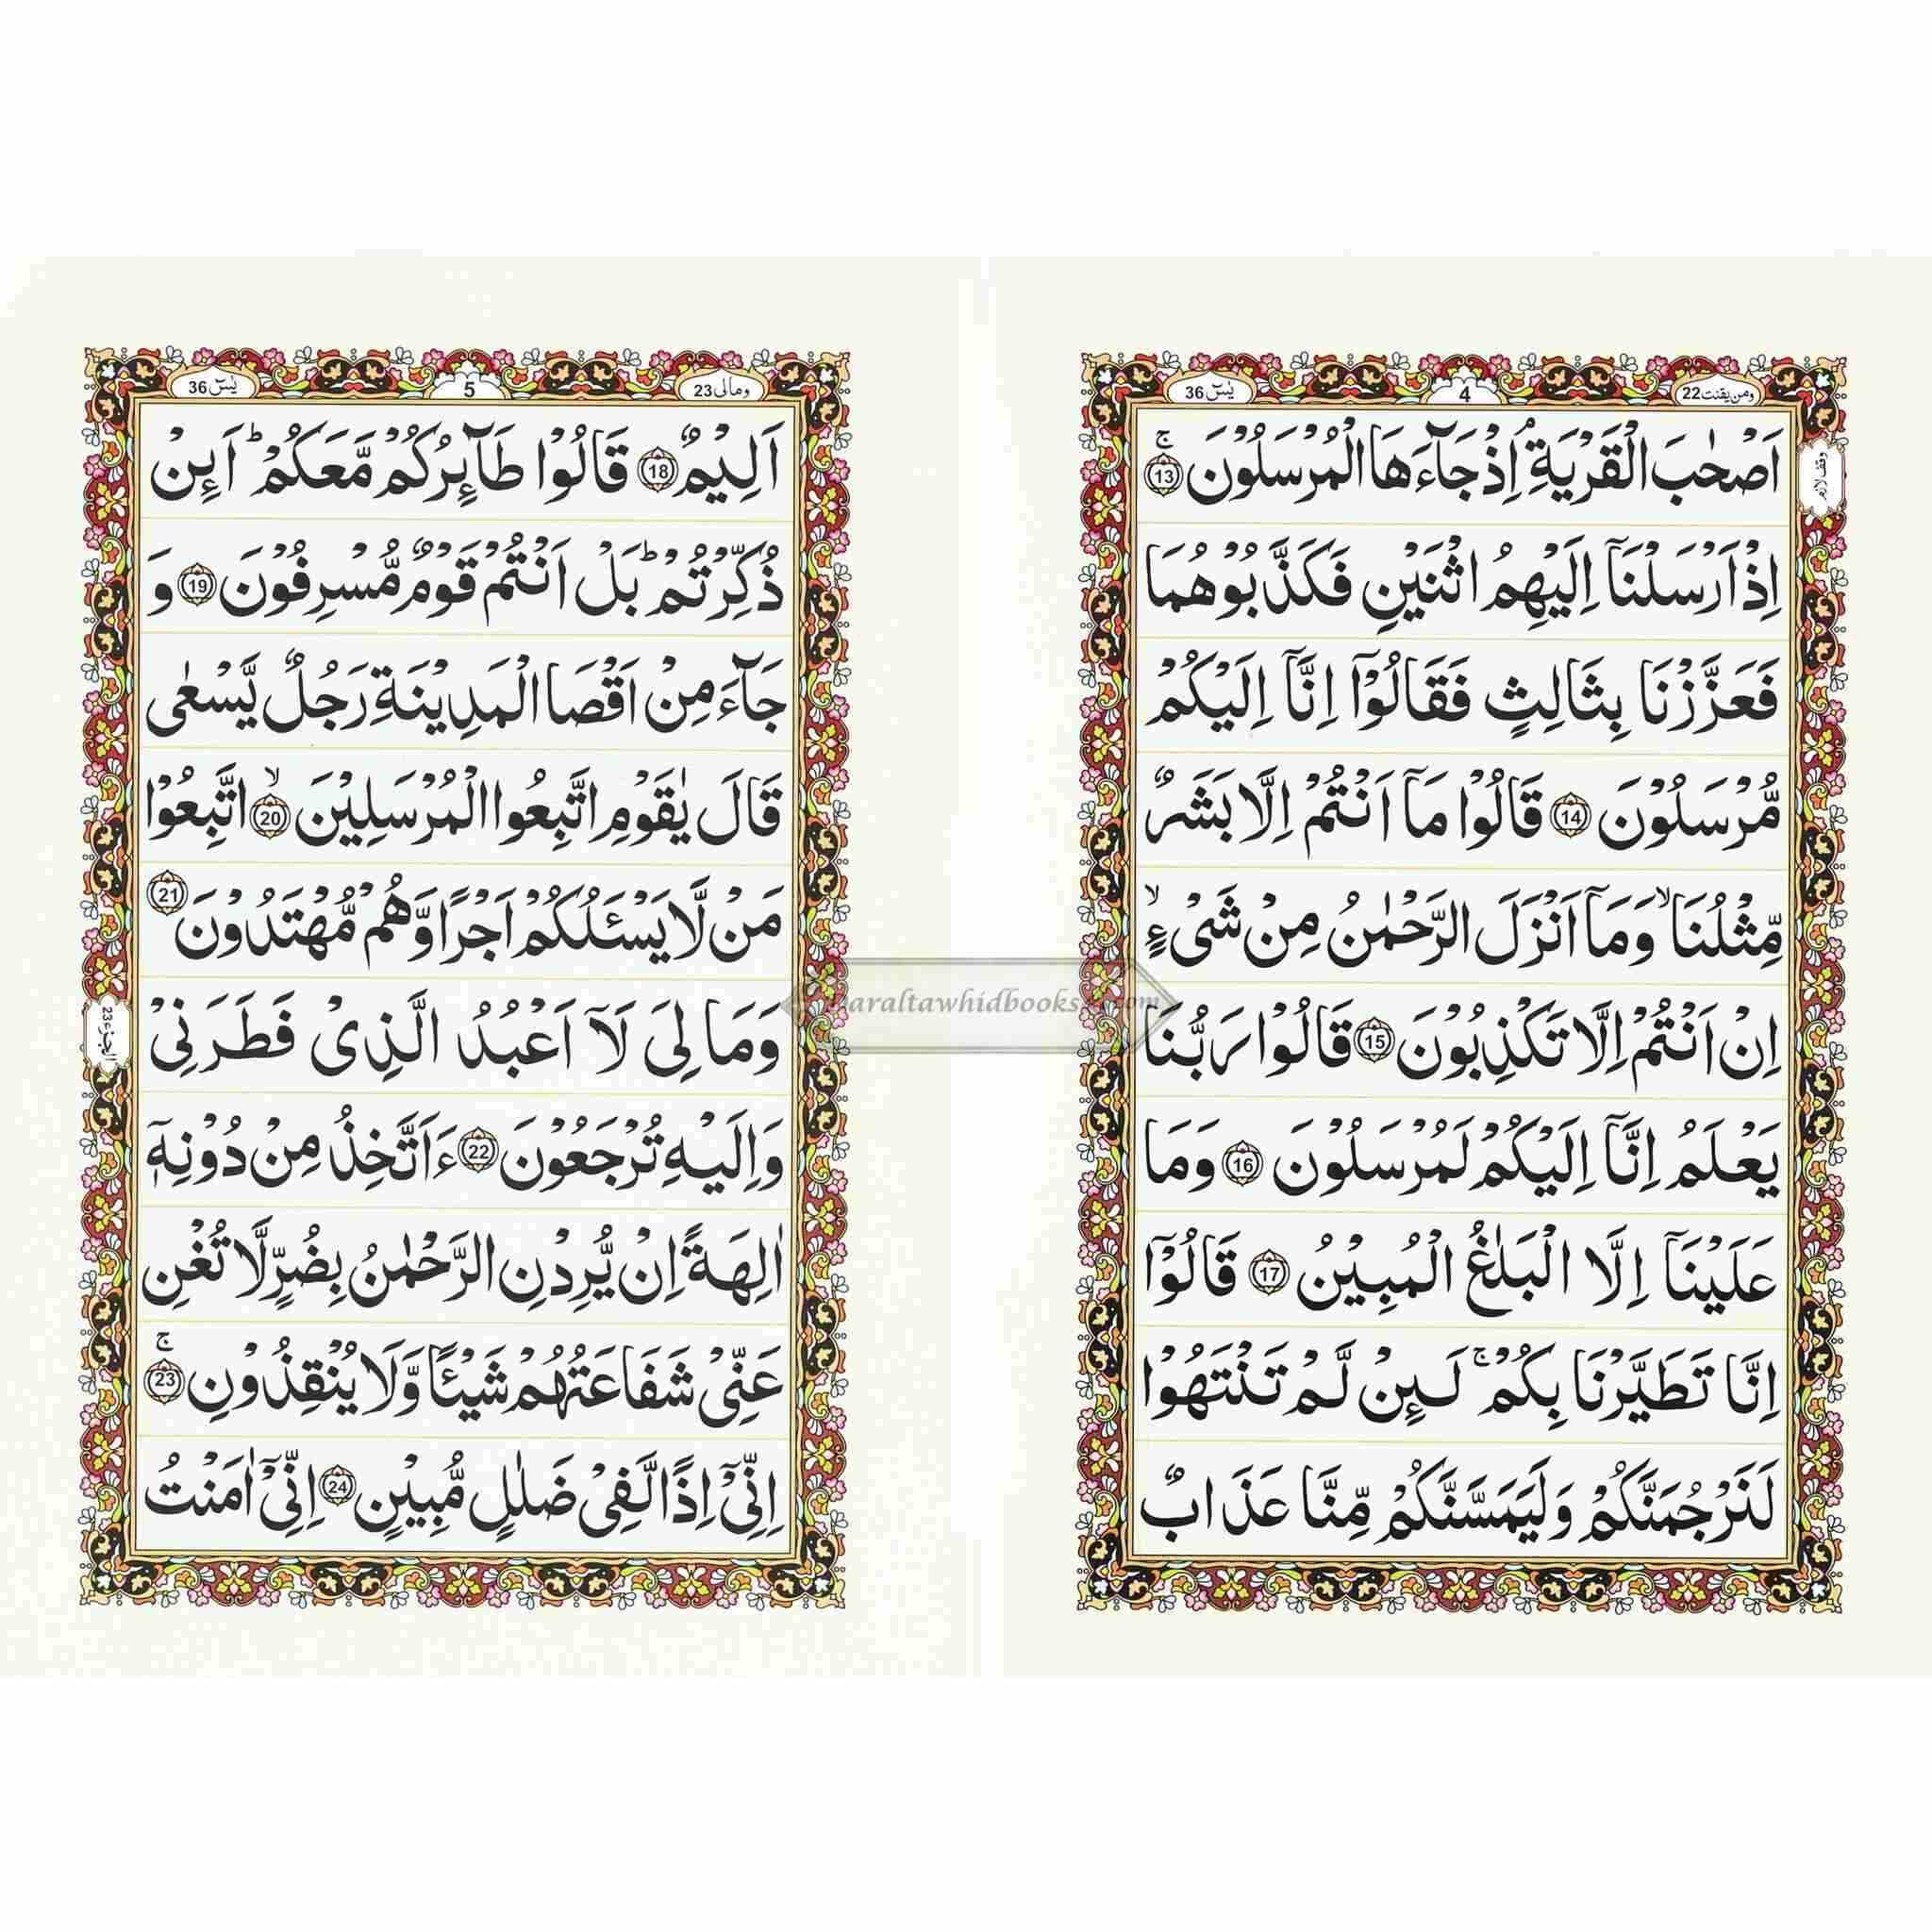 ومن يقنت 22
4
يٰسٓ 36
وقف لازم
اَصْحٰبَ الْقَرْيَةِ ۘ اِذْ جَآءَهَا الْمُرْسَلُوْنَ ۚ 13
اِذْ اَرْسَلْنَآ اِلَيْهِمُ اثْنَيْنِ فَكَذَّبُوْهُمَا
فَعَزَّزْنَا بِثَالِثٍ فَقَالُوْٓا اِنَّآ اِلَيْكُمْ
مُّرْسَلُوْنَ 14 قَالُوْا مَآ اَنْتُمْ اِلَّا بَشَرٌ
مِّثْلُنَا ۙ وَمَآ اَنْزَلَ الرَّحْمٰنُ مِنْ شَىْءٍ ۙ
اِنْ اَنْتُمْ اِلَّا تَكْذِبُوْنَ 15 قَالُوْا رَبُّنَا
يَعْلَمُ اِنَّآ اِلَيْكُمْ لَمُرْسَلُوْنَ 16 وَمَا
عَلَيْنَآ اِلَّا الْبَلٰغُ الْمُبِيْنُ 17 قَالُوْٓا
اِنَّا تَطَيَّرْنَا بِكُمْ ۚ لَئِنْ لَّمْ تَنْتَهُوْا
لَنَرْجُمَنَّكُمْ وَلَيَمَسَّنَّكُمْ مِّنَّا عَذَابٌ
ومالى 23
5
يٰسٓ 36
اَلِيْمٌ 18 قَالُوْا طَآئِرُكُمْ مَّعَكُمْ ؕ اَئِنْ
ذُكِّرْتُمْ ؕ بَلْ اَنْتُمْ قَوْمٌ مُّسْرِفُوْنَ 19 وَ
جَآءَ مِنْ اَقْصَا الْمَدِيْنَةِ رَجُلٌ يَّسْعٰى
قَالَ يٰقَوْمِ اتَّبِعُوا الْمُرْسَلِيْنَ ۙ 20 اتَّبِعُوْا
مَنْ لَّا يَسْـَٔلُكُمْ اَجْرًا وَّهُمْ مُّهْتَدُوْنَ 21
وَمَا لِىَ لَآ اَعْبُدُ الَّذِىْ فَطَرَنِىْ
الجزء 23
وَاِلَيْهِ تُرْجَعُوْنَ 22 ءَاَتَّخِذُ مِنْ دُوْنِهٖٓ
اٰلِهَةً اِنْ يُّرِدْنِ الرَّحْمٰنُ بِضُرٍّ لَّا تُغْنِ
عَنِّىْ شَفَاعَتُهُمْ شَيْـًٔا وَّلَا يُنْقِذُوْنِ ۚ 23
اِنِّىْٓ اِذًا لَّفِىْ ضَلٰلٍ مُّبِيْنٍ 24 اِنِّىْٓ اٰمَنْتُ
daraltawhidbooks.com